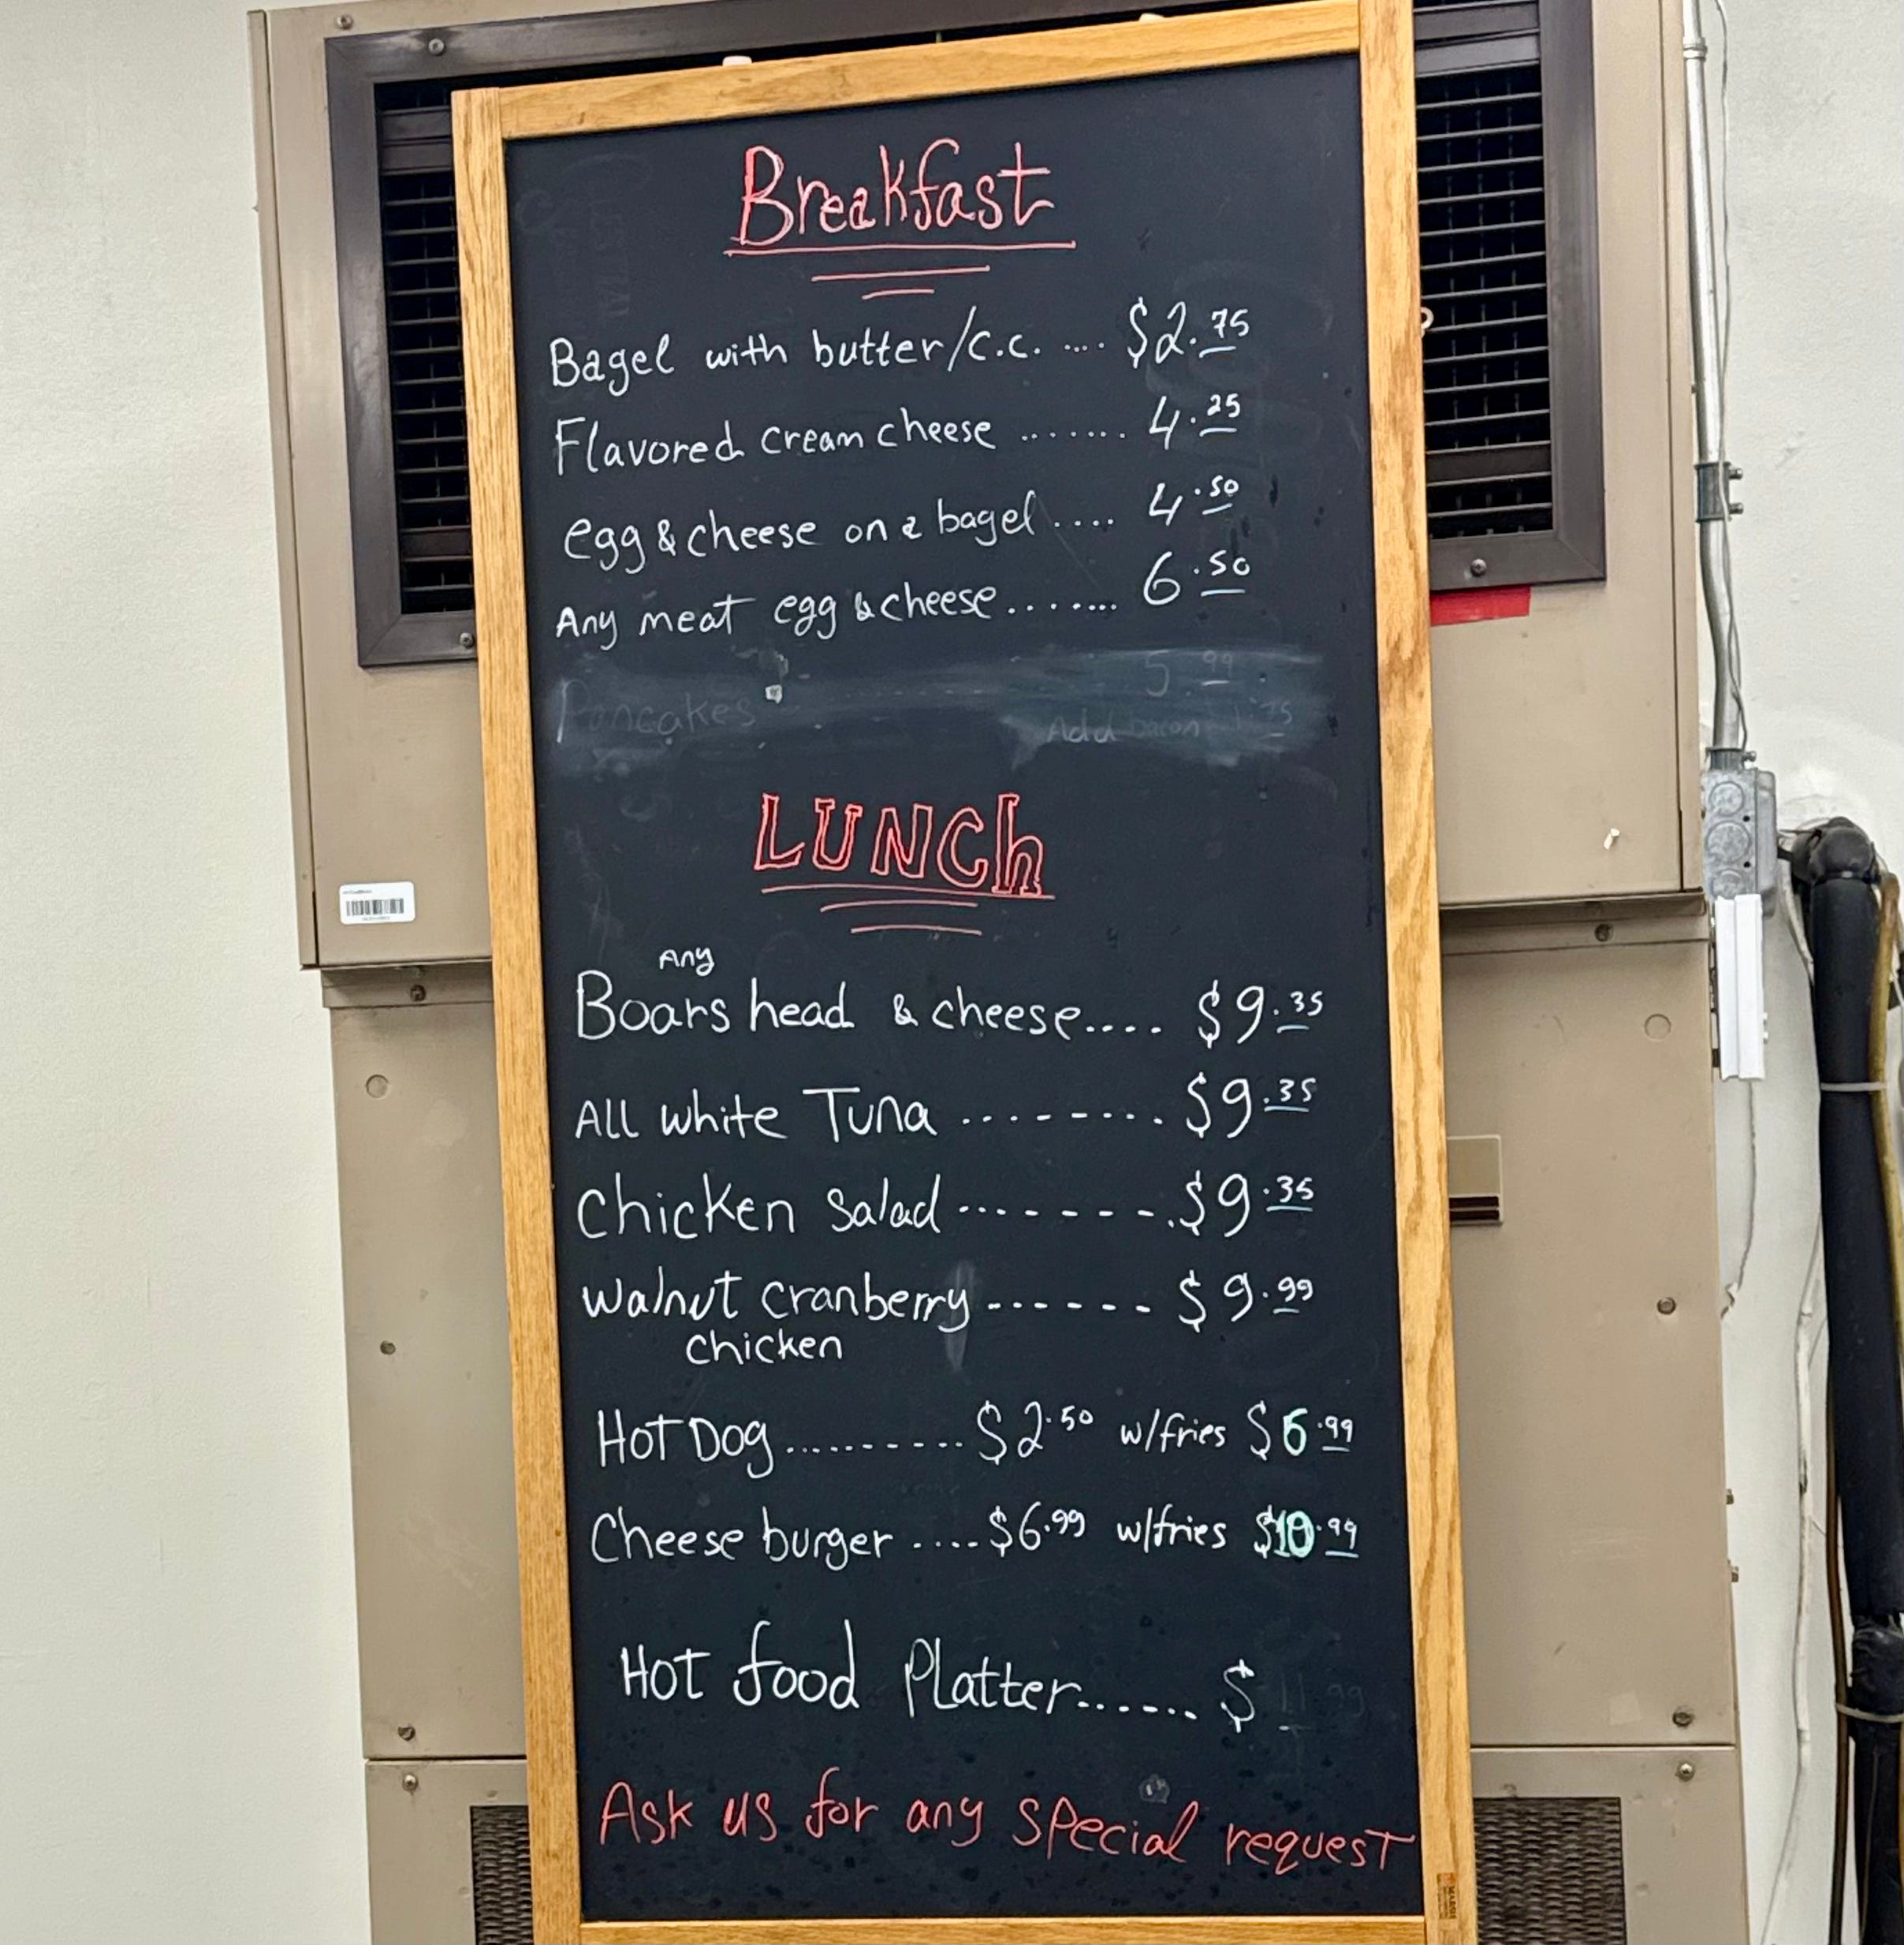 Breakfast
Bagel with butter/c.c. .... $2.75
Flavored cream cheese ....... 4.25
egg & cheese on a bagel .... 4.50
Any meat egg & cheese........ 6.50
Pancakes 5.99
Add bacon 1.75
LUNCh
Any
Boars head & cheese.... $9.35
All white Tuna ......... $9.35
Chicken Salad ......... $9.35
Walnut cranberry ------ $9.99
chicken
HOT DOG .......... $2.50 w/fries $6.99
Cheese burger .... $6.99 w/fries $10.99
HOT food Platter...... $ 11.99
Ask us for any special request